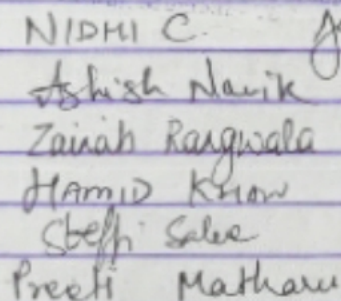 NIDHI C.
Ashish Navik
Zainab Rangwala
HAMID KHAN
Steffi Salve
Preeti Matharu